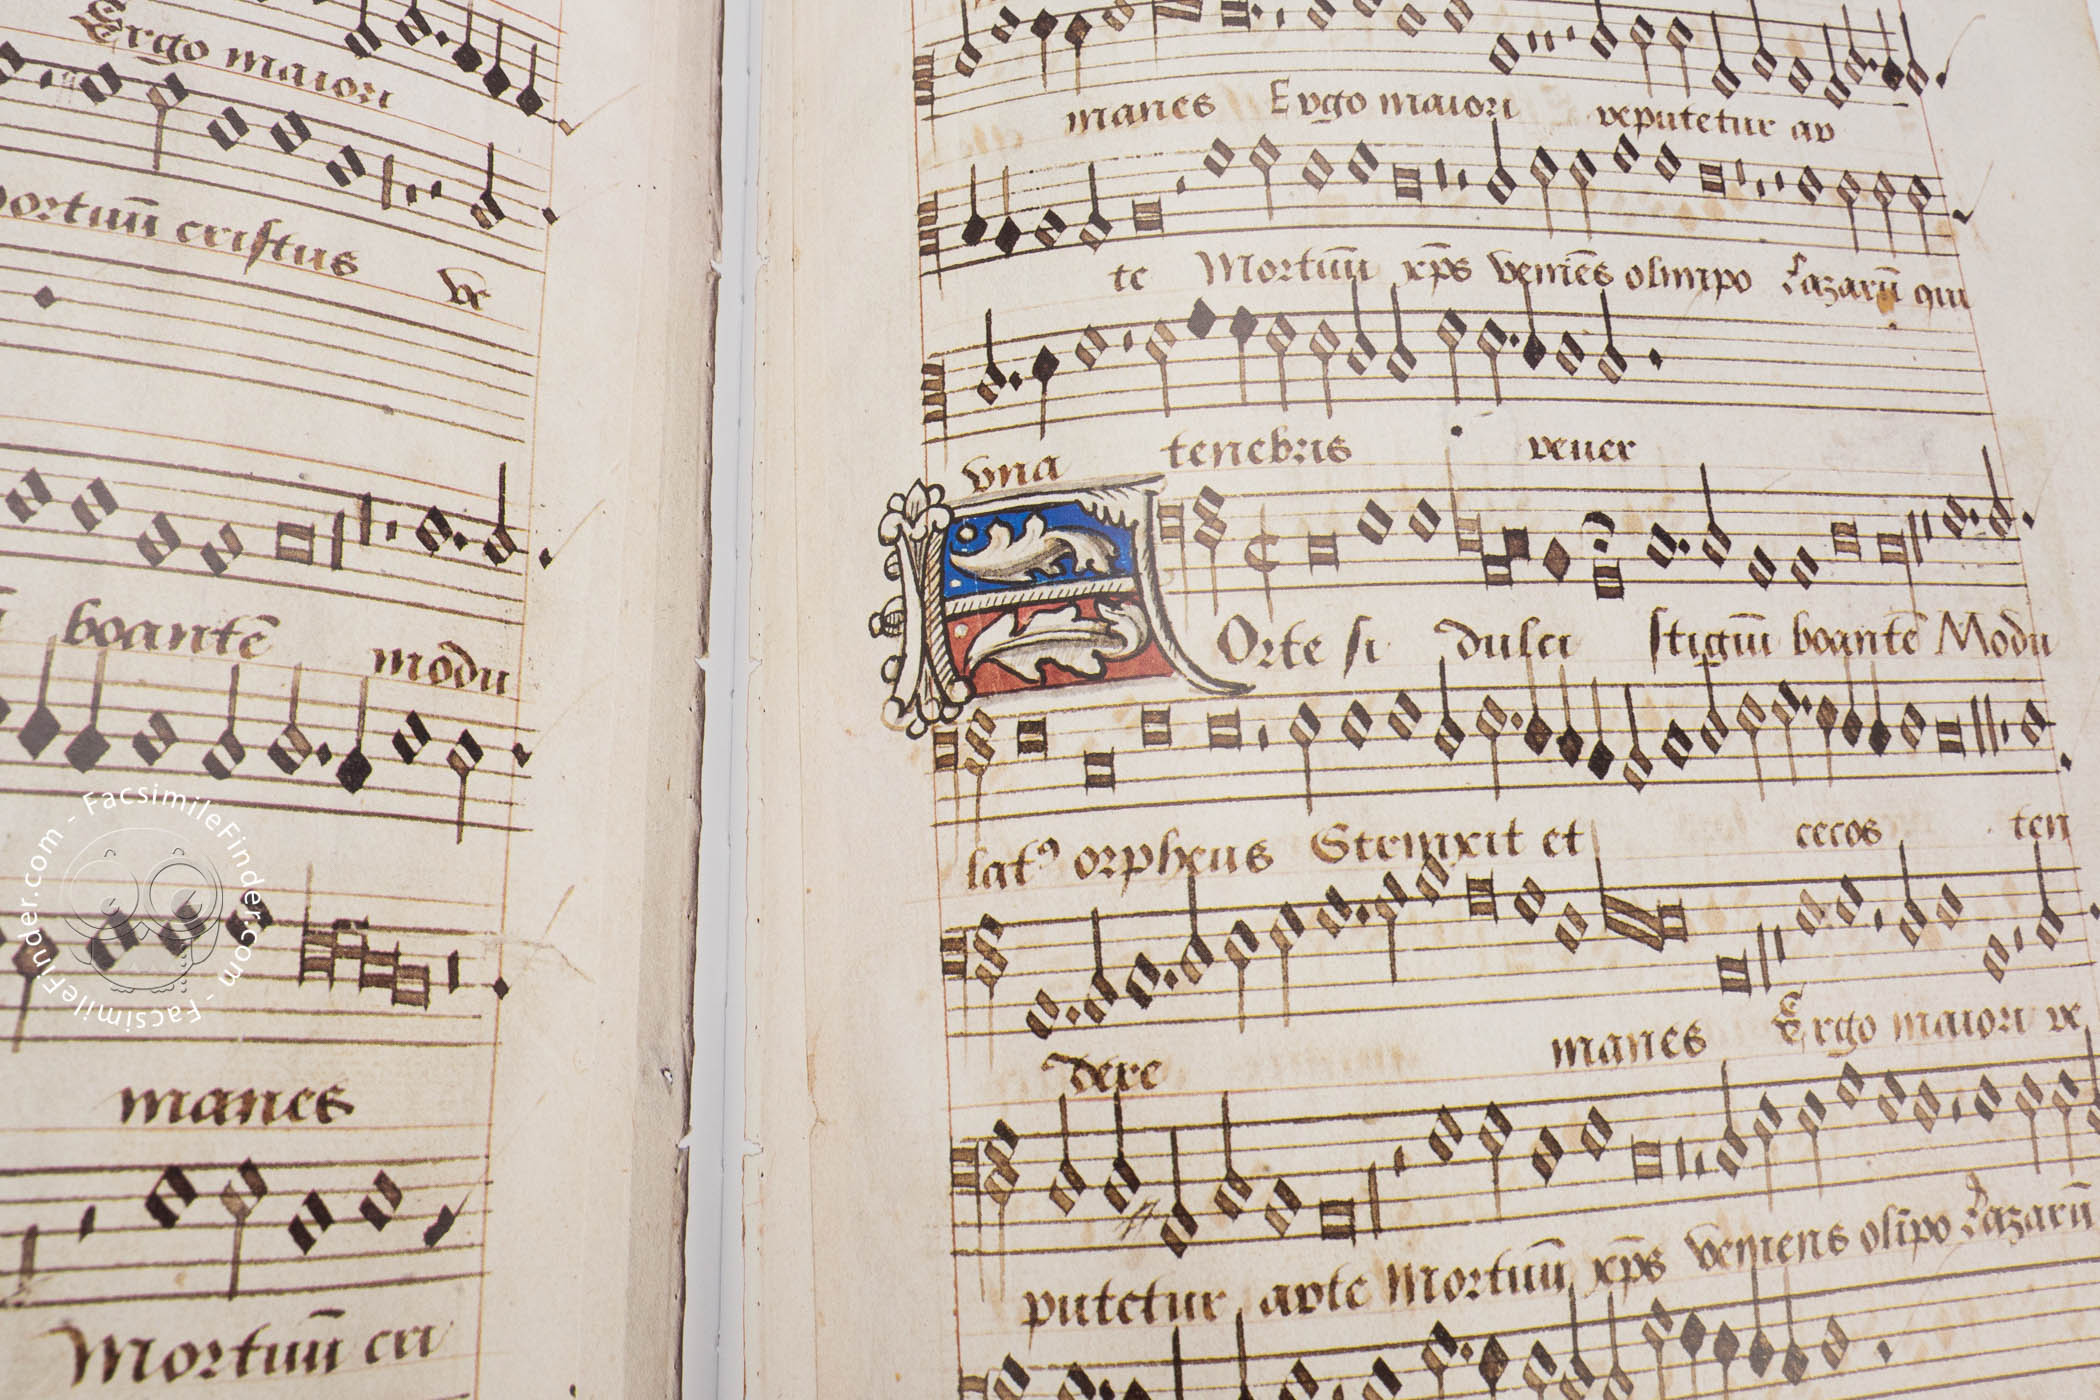 Ergo maiori
ortuū cristus ve
boantē modu
manes
Mortuū cri
manes Ergo maiori reputetur ar
te Mortuū xp̄s veniēs olimpo Lazarū qui
vna tenebris reuer
Orte si dulci stigiū boantē Modu
lat⁹ orpheus Strinxit et cecos ten
dere manes Ergo maiori re
putetur arte Mortuū xp̄s veniens olīpo Lazarū
FacsimileFinder.com - FacsimileFinder.com -